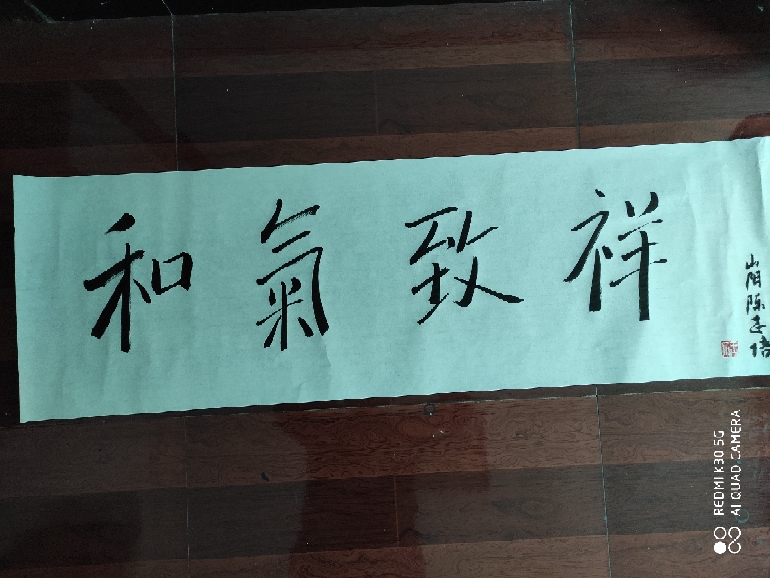 和氣致祥
山阴陈玉培
REDMI K30 5G
AI QUAD CAMERA